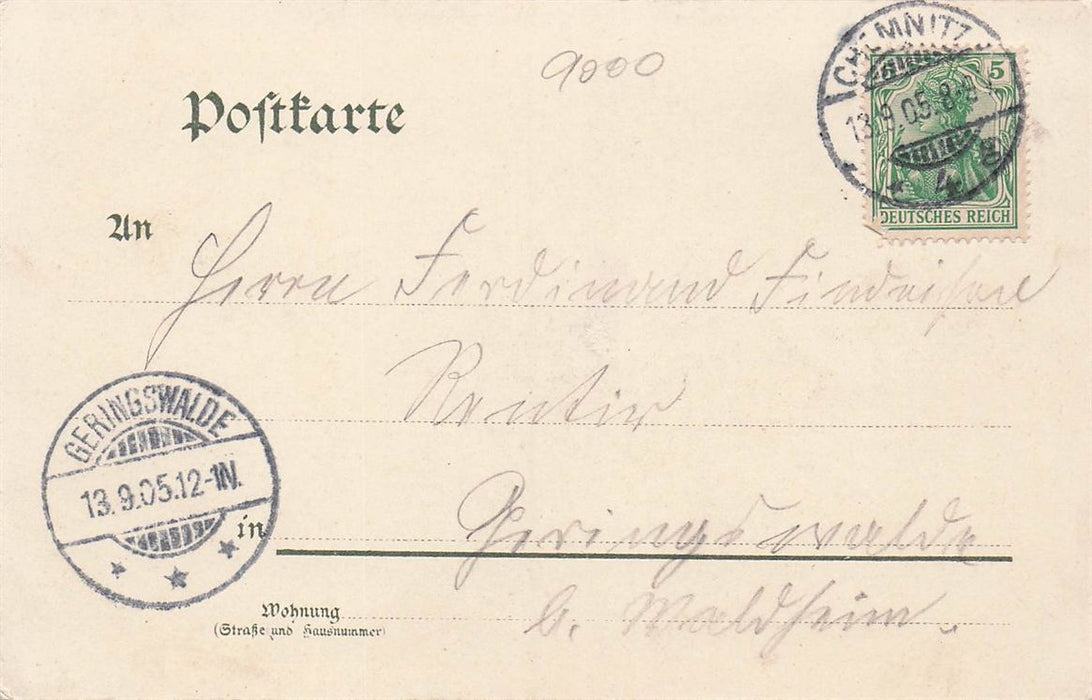 9000
CHEMNITZ
13.9.05.8-9
* 4 g
5
DEUTSCHES REICH
Postkarte
An
Herrn Ferdinand Findeisen
Rentier
GERINGSWALDE
13.9.05.12-1N.
in
Geringswalde
b. Waldheim.
Wohnung
(Straße und Hausnummer)